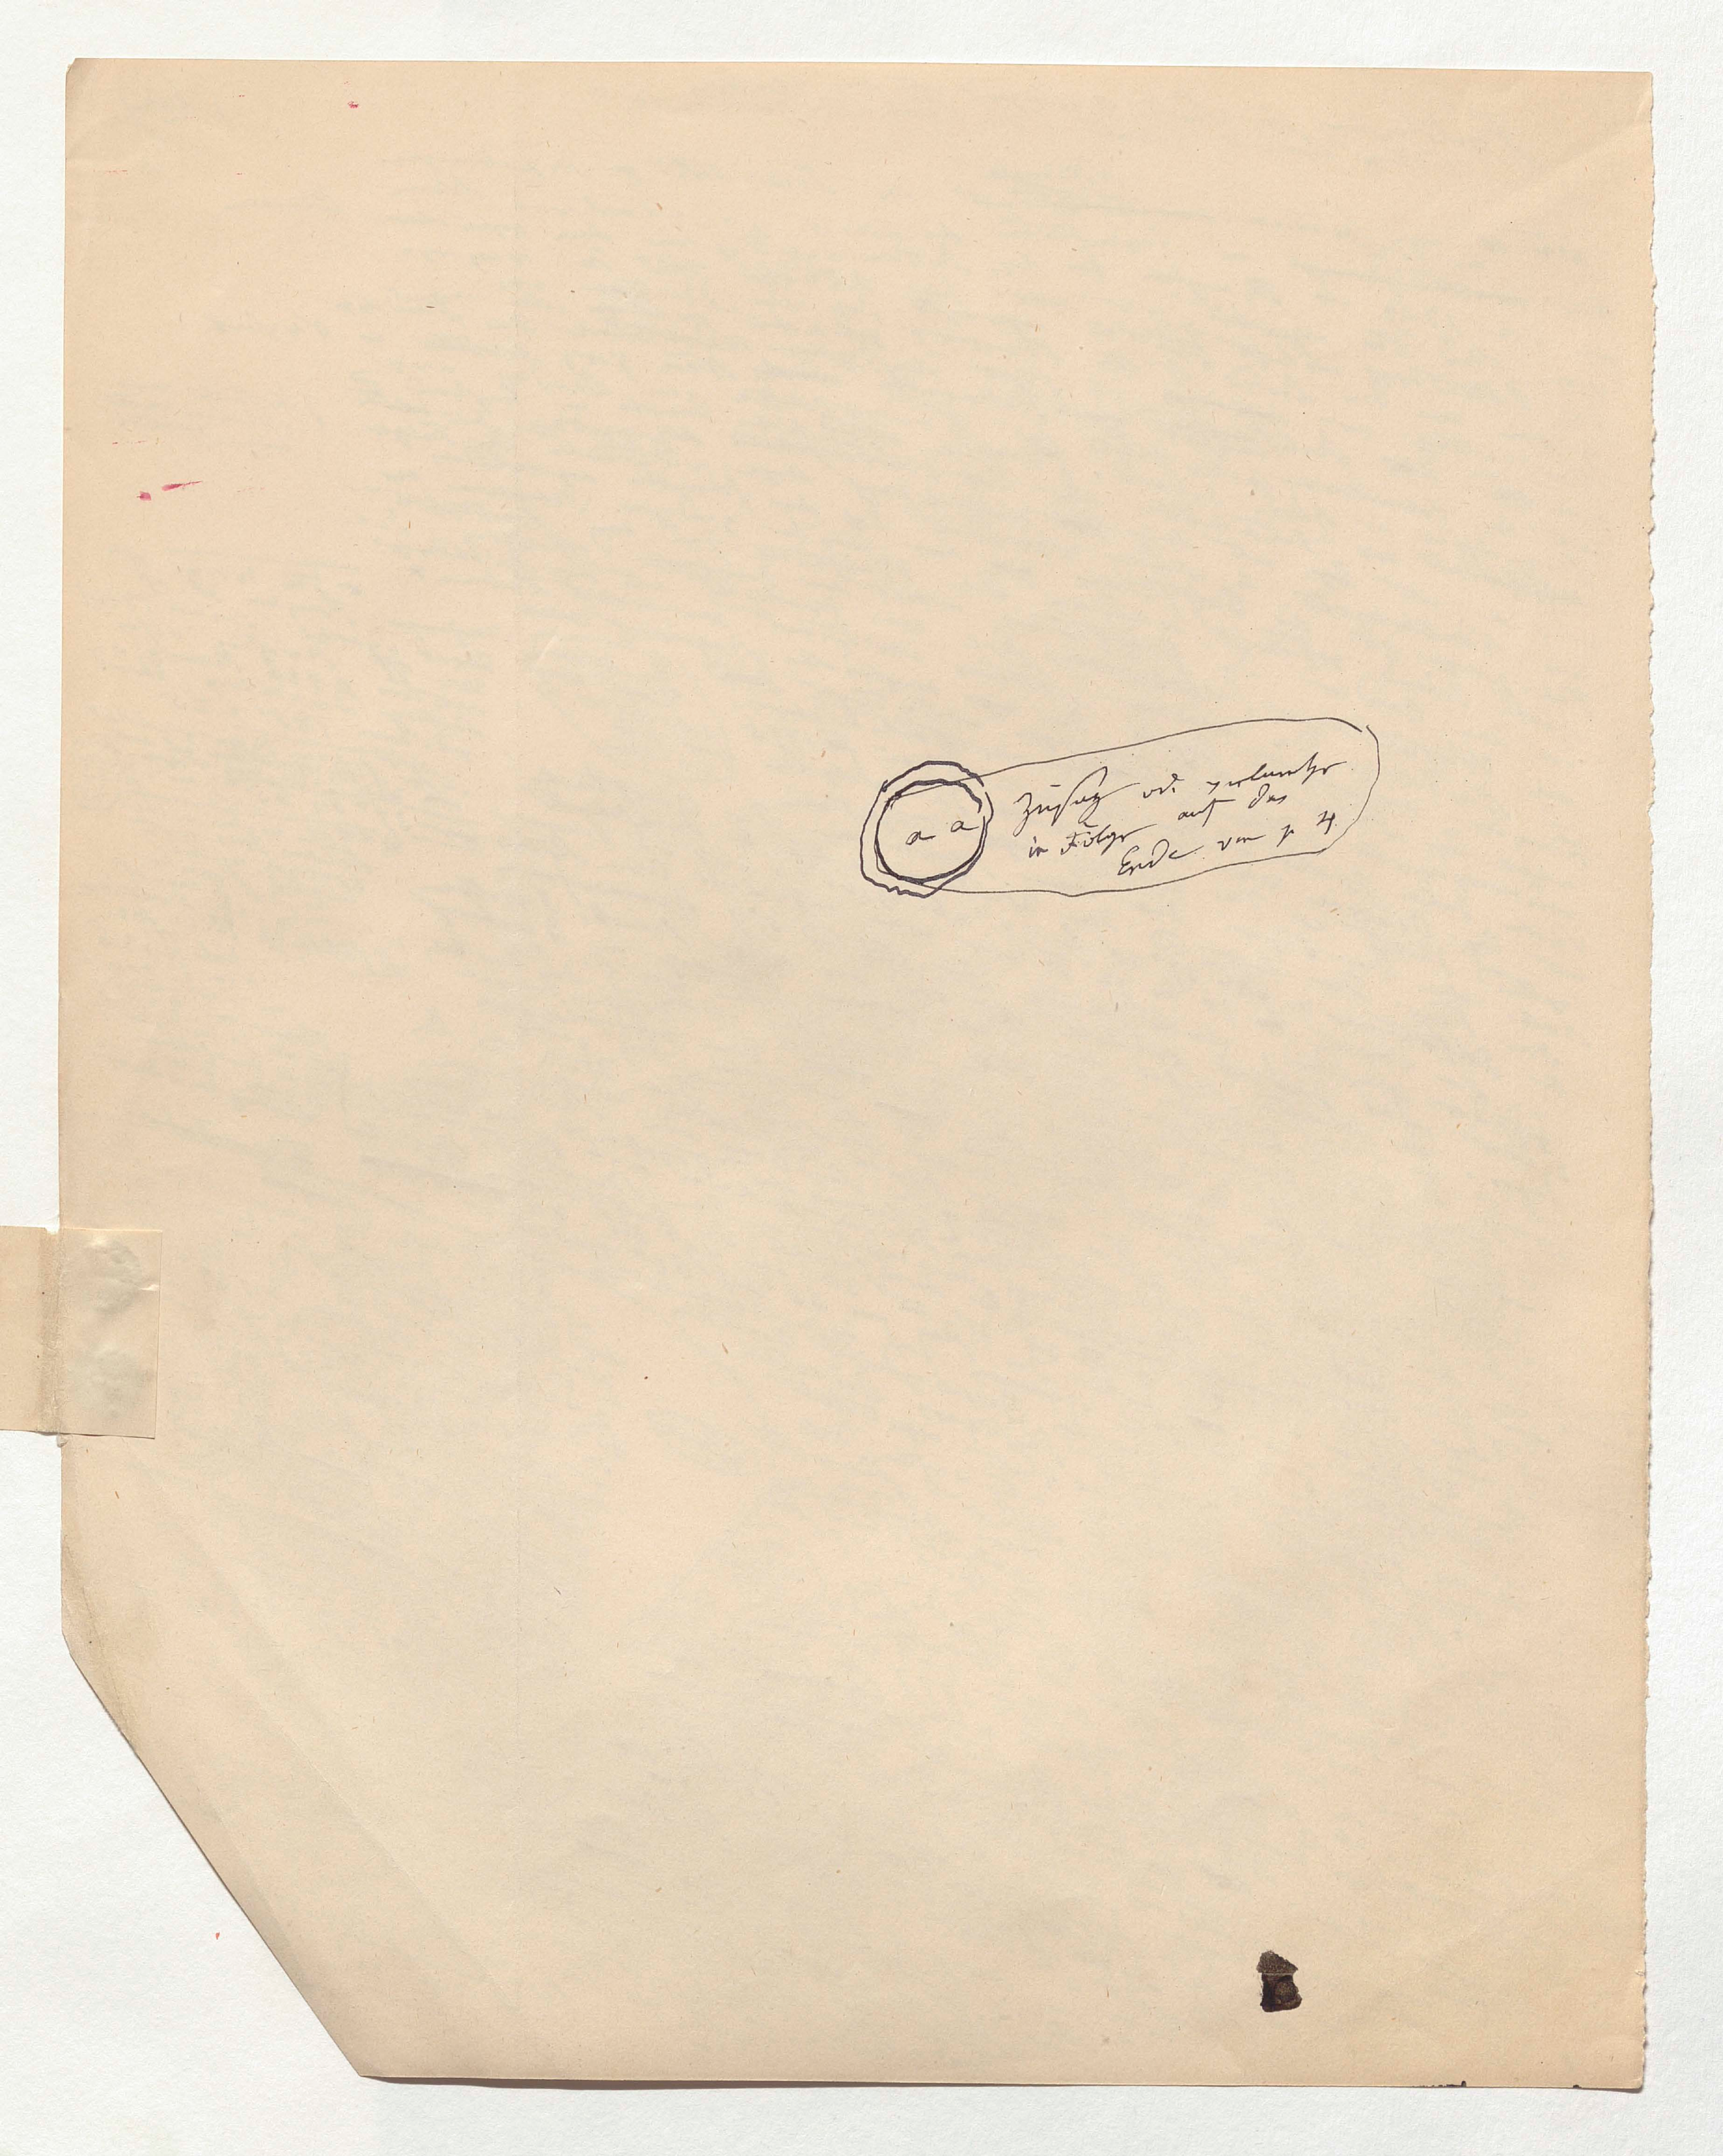 a a
Zusatz od.
in Folge auf das
Ende von p 4